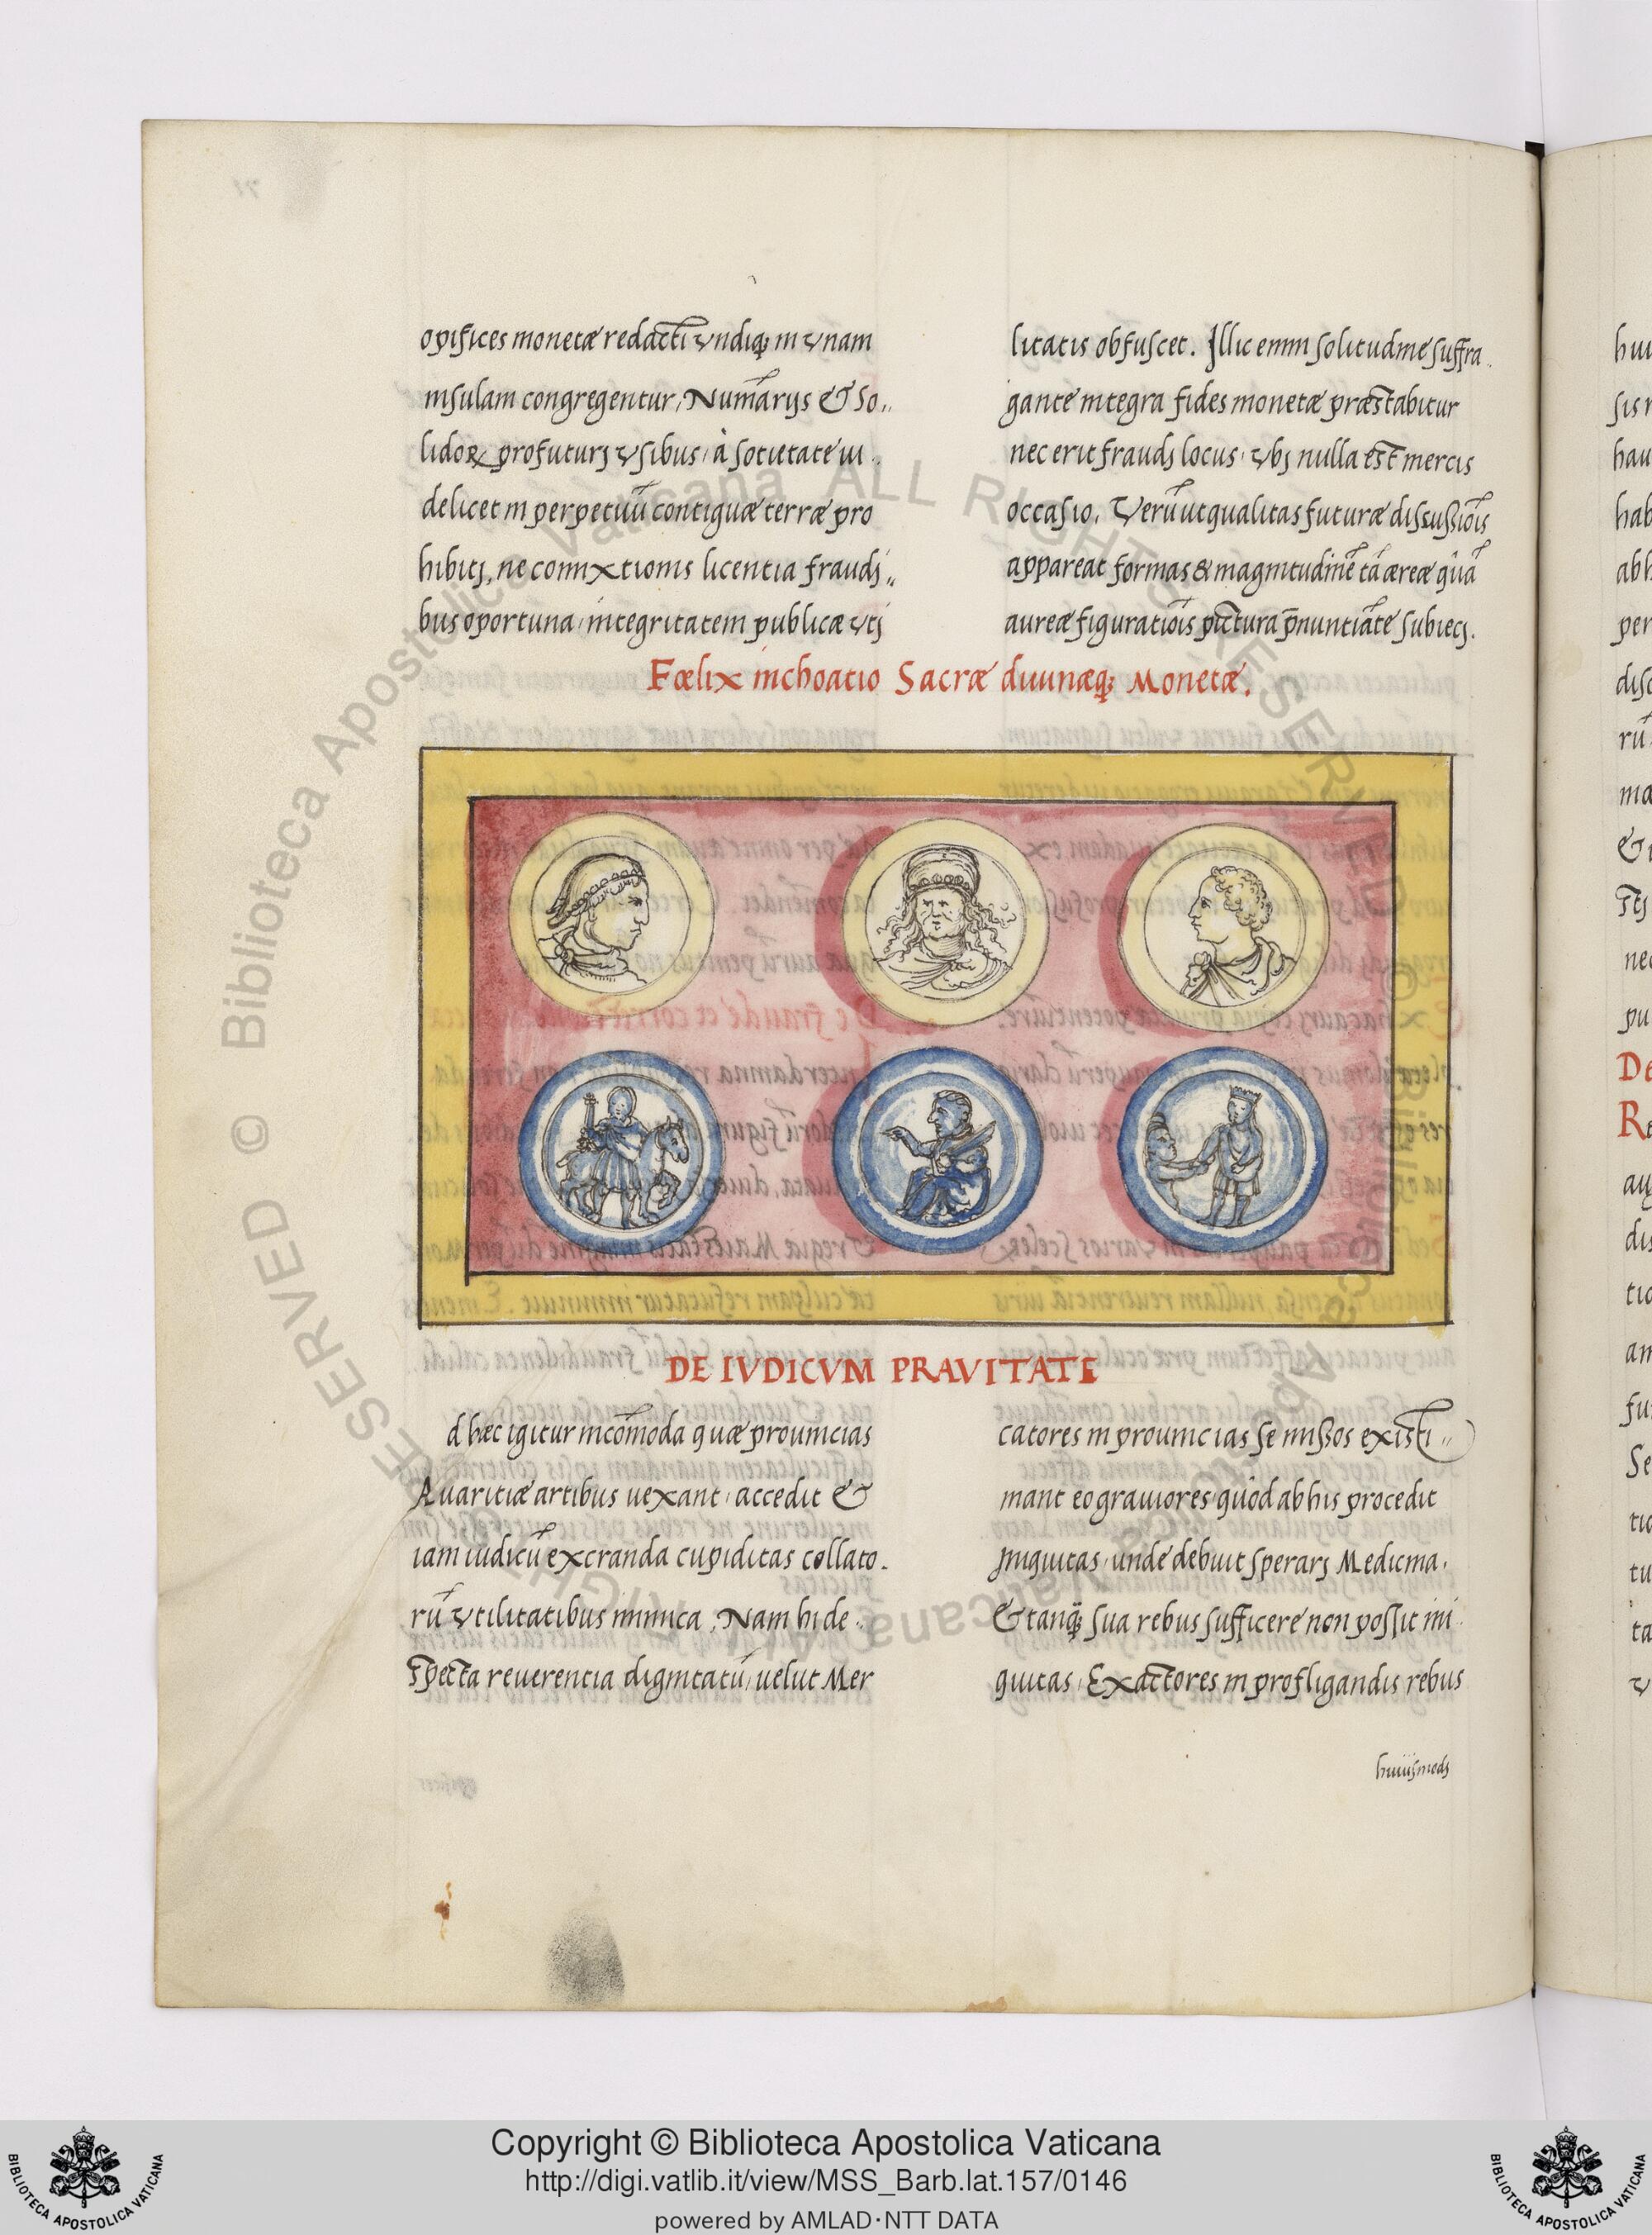 opifices monetæ redacti undiq; in unam
insulam congregentur, Num̄arijs & so„
lidoꝝ profuturj usibus, à sotietate ui„
delicet in perpetuū contiguæ terræ pro
hibitj, ne comixtionis licentia fraudj„
bus oportuna, integritatem publicæ utj
litatis obfuscet. Illic enim solitudine suffra„
gante integra fides monetæ præstabitur
nec erit fraudj locus, ubj nulla est mercis
occasio. Verū ut qualitas futuræ discussiōis
appareat formas & magnitudinē tā æreæ quā
aureæ figuratiōis pictura p̄nuntiāte subiecj.
Fœlix inchoatio Sacræ diuinæq; Monetæ.
DE IVDICVM PRAVITATE
d hæc igitur incōmoda quæ prouincias
Auaritiæ artibus uexant, accedit &
iam iudicū excranda cupiditas collato„
rū utilitatibus inimica, Nam hi de„
specta reuerentia dignitatū, uelut Mer
catores in prouincias se missos existi„
mant eo grauiores, quòd ab his procedit
iniquitas, unde debuit sperarj Medicina,
& tanq̄; sua rebus sufficere non possit ini„
quitas, Exactores in profligandis rebus
huiusmodj
Copyright © Biblioteca Apostolica Vaticana
http://digi.vatlib.it/view/MSS_Barb.lat.157/0146
powered by AMLAD·NTT DATA
BIBLIOTECA APOSTOLICA VATICANA
BIBLIOTECA APOSTOLICA VATICANA